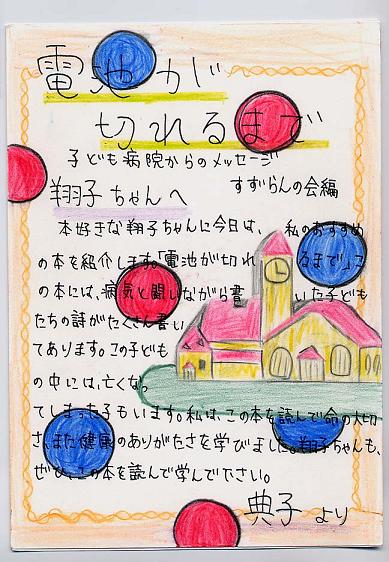 電池が
切れるまで
子ども病院からのメッセージ
すずらんの会編
翔子ちゃんへ
本好きな翔子ちゃんに今日は、私のおすすめ
の本を紹介します。「電池が切れるまで」こ
の本には、病気と闘いながら書いた子ども
たちの詩がたくさん書い
てあります。この子ども
の中には、亡くなっ
てしまった子もいます。私は、この本を読んで命の大切
さ、また健康のありがたさを学びました。翔子ちゃんも、
ぜひ、この本を読んで学んで下さい。
典子より